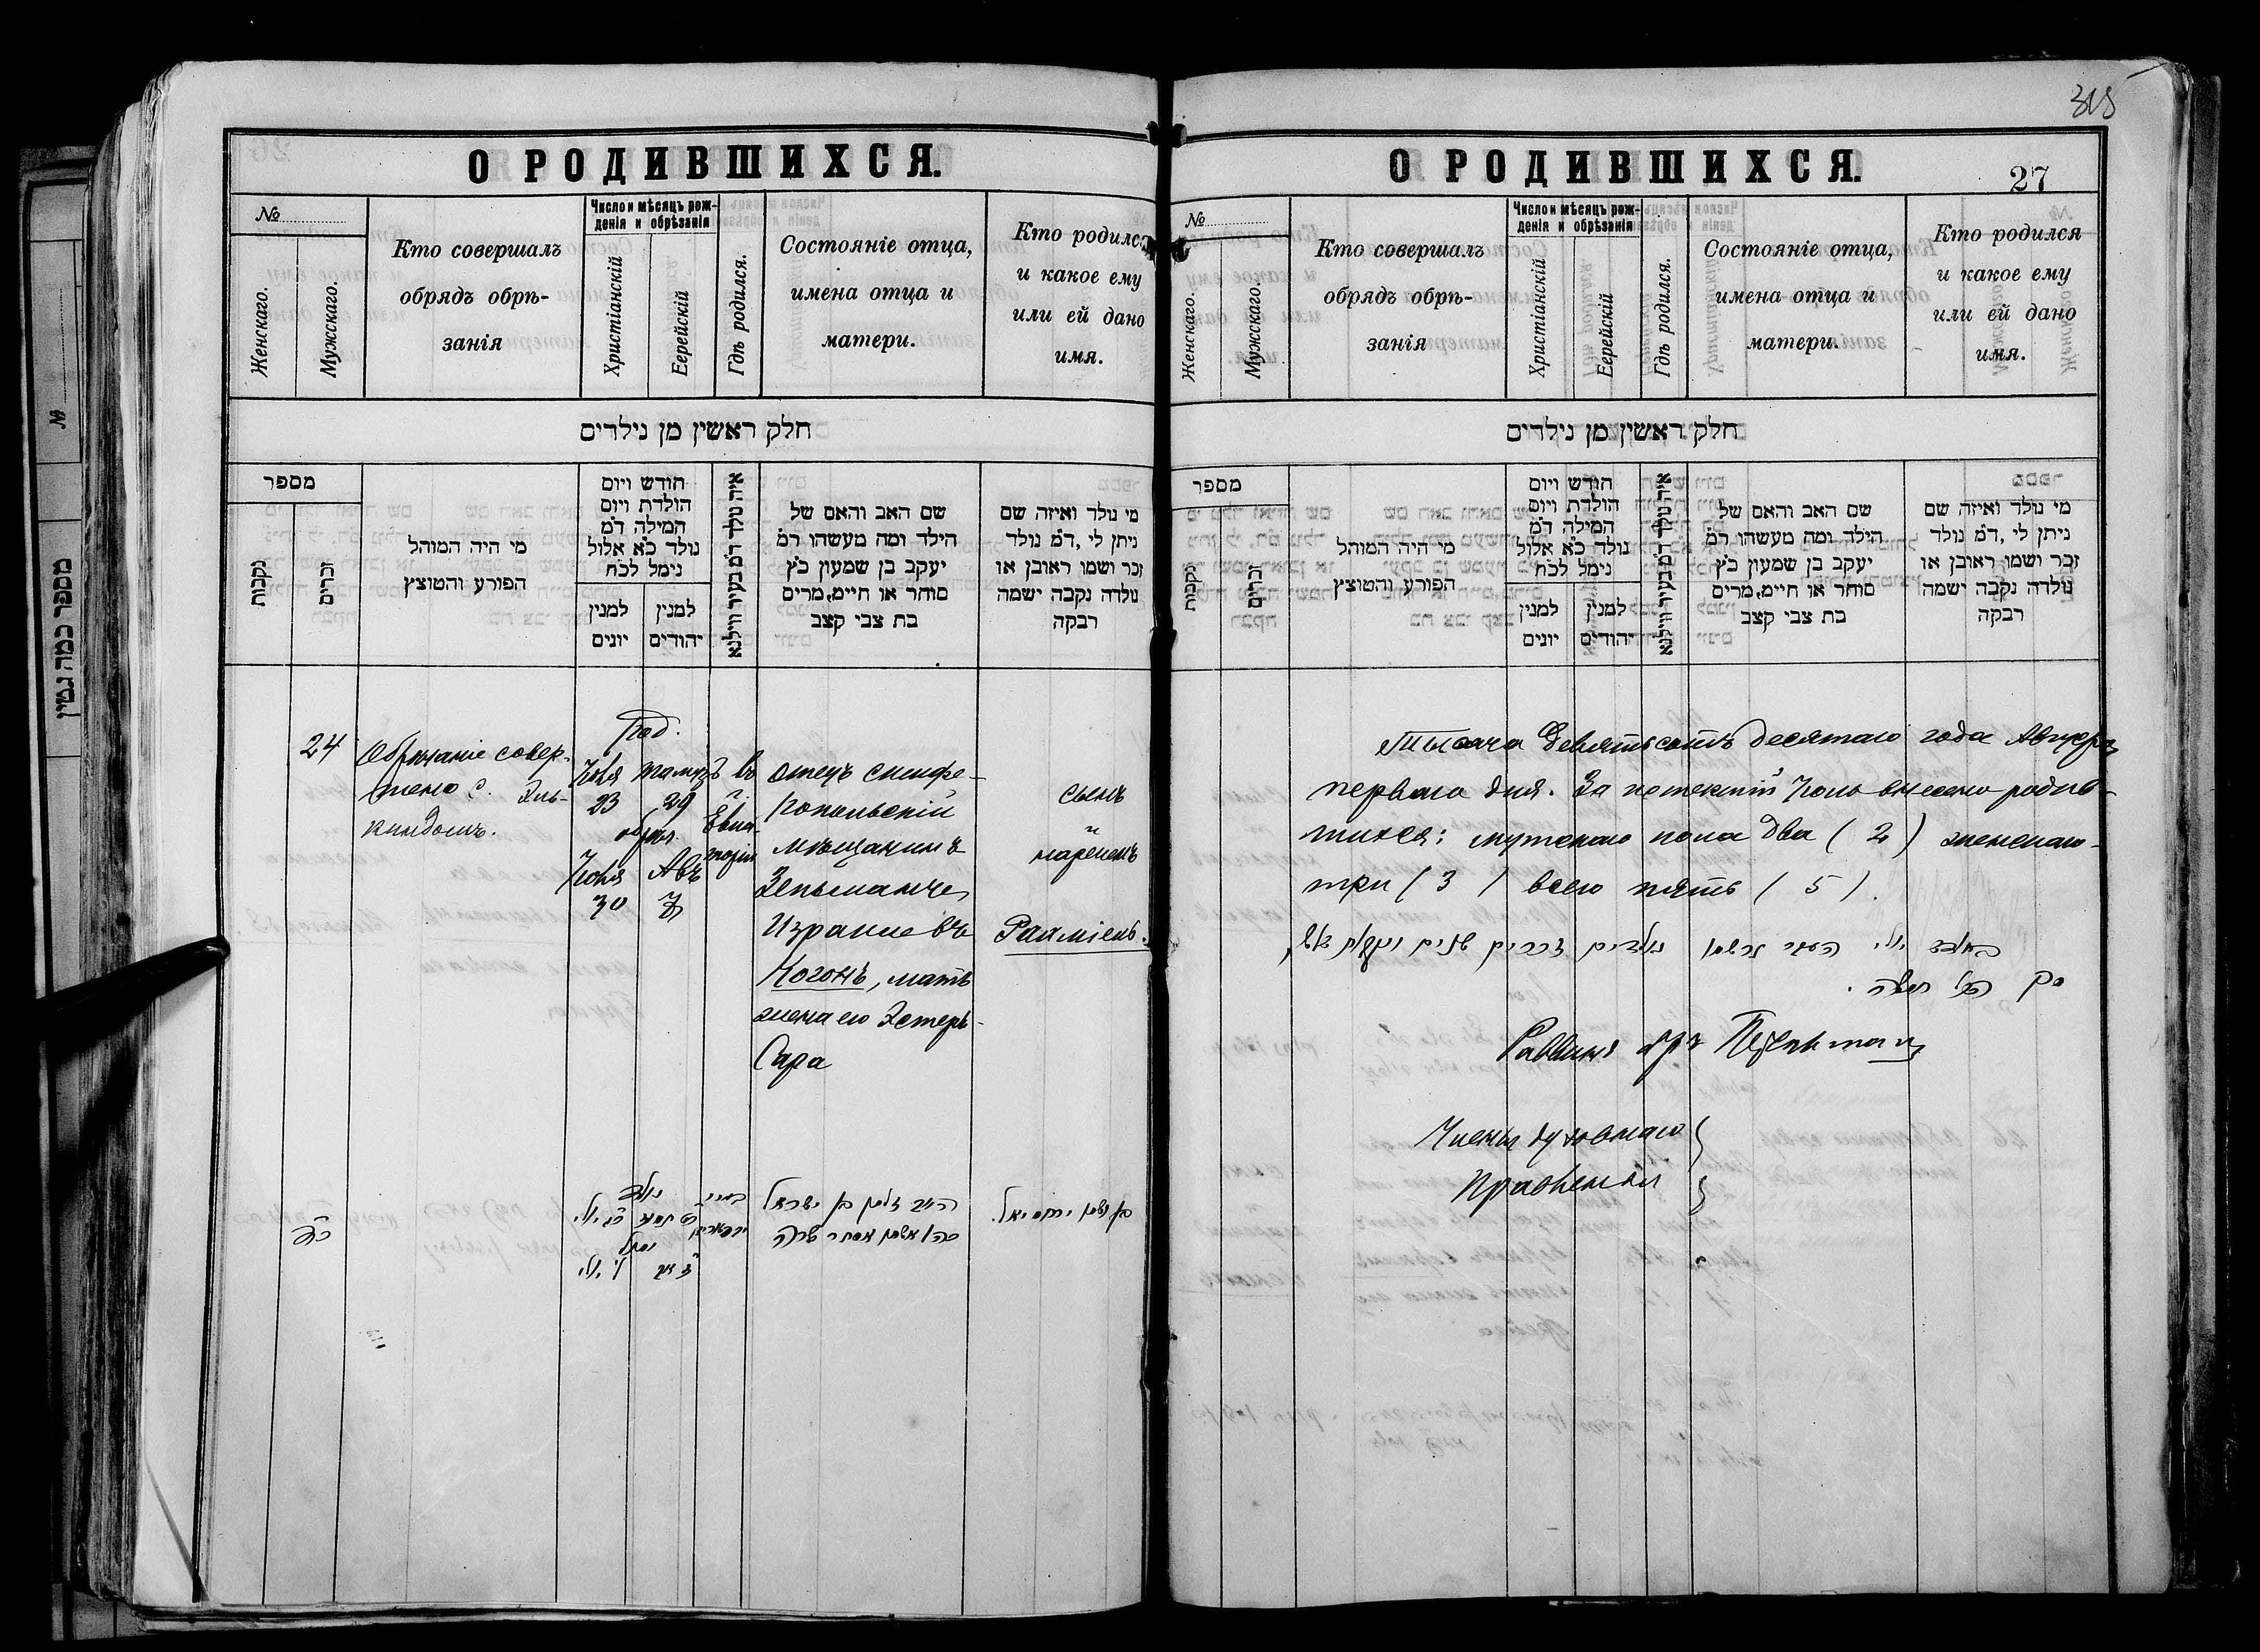 315
О РОДИВШИХСЯ.
№
Женскаго.
Мужскаго.
Кто совершалъ
обрядъ обрѣ-
занія
Число и мѣсяцъ рож-
денія и обрѣзанія
Христіанскій
Еерейскій
Гдѣ родился.
Состояніе отца,
имена отца и
матери.
Кто родился
и какое ему
или ей дано
имя.
חלק ראשין מן נילדים
מספר
נקבות
זכרים
מי היה המוהל
הפורע והטוצץ
חודש ויום
הולדת ויום
המילה ד״מ
נולד כ״א אלול
נימל לכ״ח
למנין
יונים
למנין
יהודים
איה נולד ד״מ בעיר ווילנא
שם האב והאם של
הילד ומה מעשהו ד״מ
יעקב בן שמעון כ״ץ
סוחר או חיים, מרים
בת צבי קצב
מי נולד ואיזה שם
ניתן לי, ד״מ נולד
זכר ושמו ראובן או
נולדה נקבה ישמה
רבקה
24
Обрѣзаніе совер-
шено
Род.
Іюля Тамузъ
23 29
обрѣз.
Іюля Авъ
30 7
въ
г.
Евпа-
торіи
отецъ симфе-
ропольскій
мѣщанинъ
Зельманъ
Израилевъ
Когонъ, мать
жена его Эстеръ-
Сара
сынъ
и
нареченъ
נולד
כ״ט תמוז כ״ג יולי
נימל
ז׳ אב ל׳ יולי
זלמן בן ישראל
כהן אשתו אסתר שרה
О РОДИВШИХСЯ.
27
№
Женскаго.
Мужскаго.
Кто совершалъ
обрядъ обрѣ-
занія
Число и мѣсяцъ рож-
денія и обрѣзанія
Христіанскій
Еерейскій
Гдѣ родился.
Состояніе отца,
имена отца и
матери.
Кто родился
и какое ему
или ей дано
имя.
חלק ראשין מן נילדים
מספר
נקבות
זכרים
מי היה המוהל
הפורע והטוצץ
חודש ויום
הולדת ויום
המילה ד״מ
נולד כ״א אלול
נימל לכ״ח
למנין
יונים
למנין
יהודים
איה נולד ד״מ בעיר ווילנא
שם האב והאם של
הילד ומה מעשהו ד״מ
יעקב בן שמעון כ״ץ
סוחר או חיים, מרים
בת צבי קצב
מי נולד ואיזה שם
ניתן לי, ד״מ נולד
זכר ושמו ראובן או
נולדה נקבה ישמה
רבקה
Тысяча девятьсотъ десятаго года Августа
перваго дня. За истекшій Іюль внесено родив-
шихся: мужскаго пола два (2) женскаго
три (3) всего пять (5).
יולי נולדים זכרים שנים
הכל חמשה.
Раввинъ
Члены духовнаго
Правленія
מספר כמה גטין
№